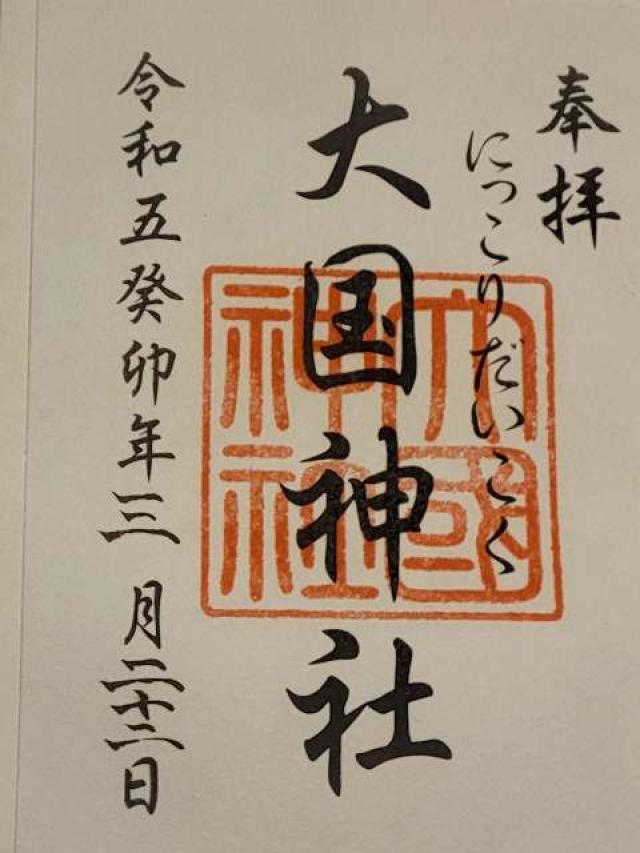 奉拝
にっこりだいこく
大国神社
大國神社
令和五癸卯年三月二十二日